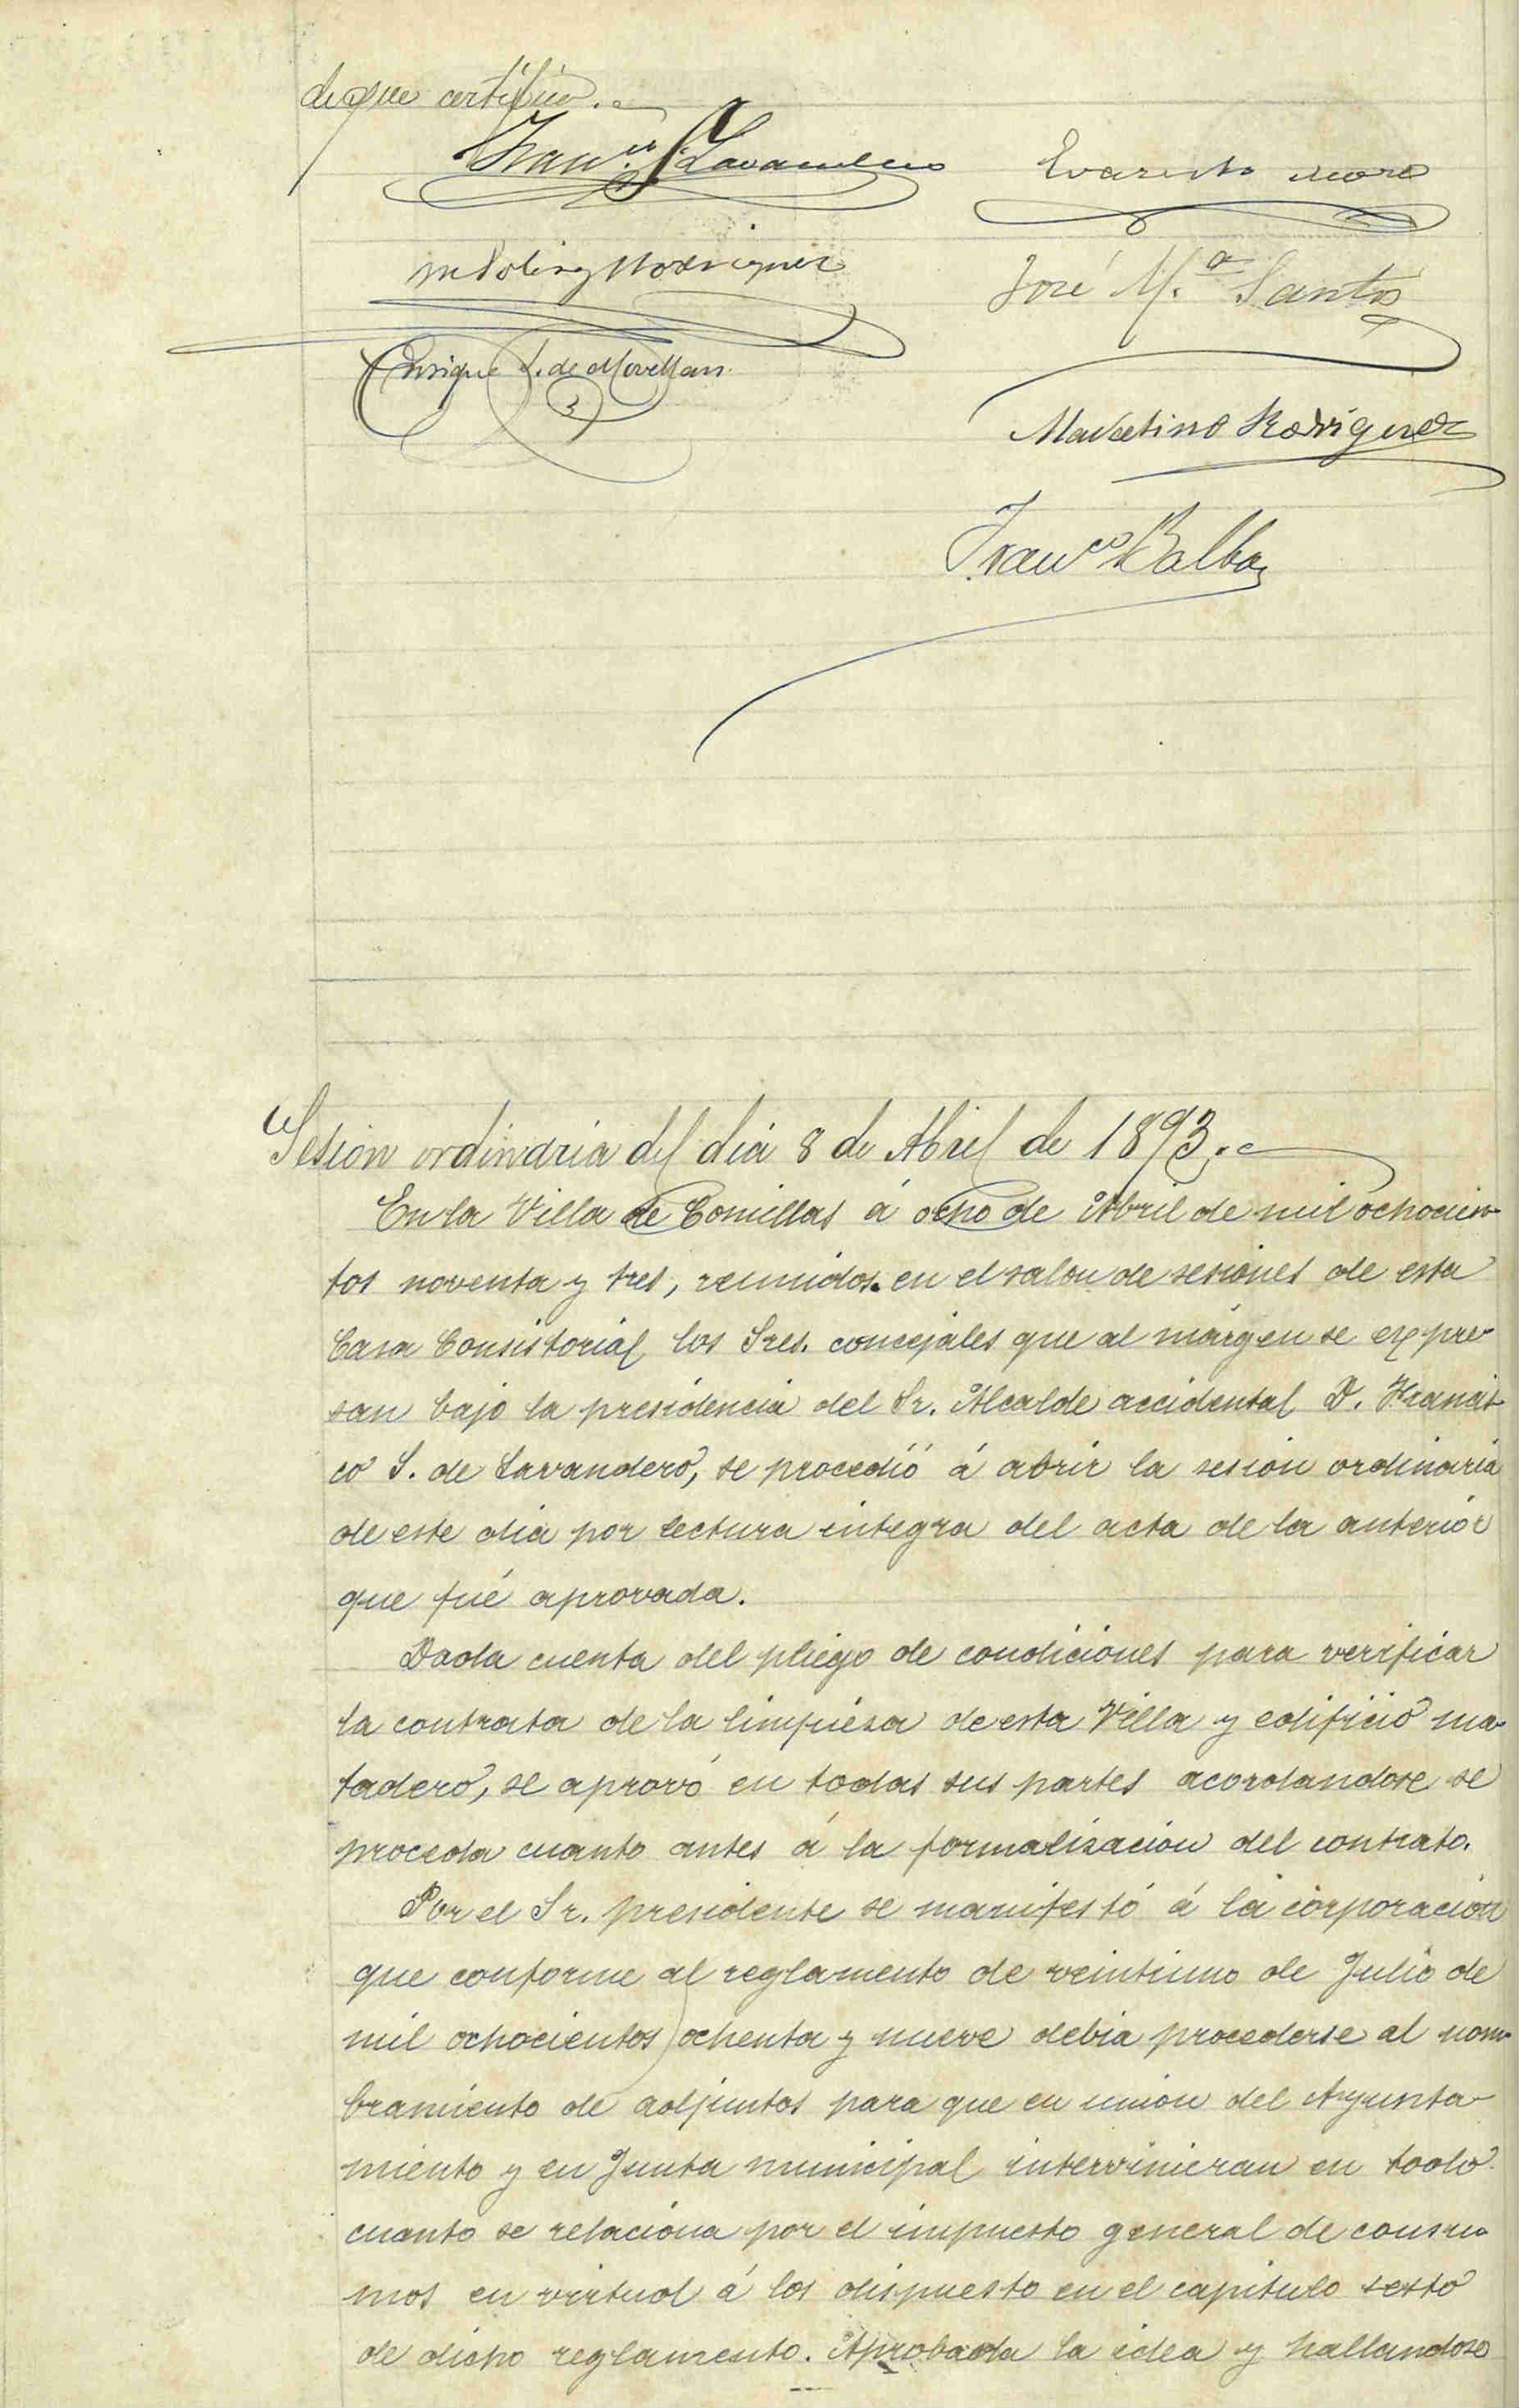 de que certifico.
Fran.co S. Lavandero
Evaristo Mora
M Solis y Rodriguez
José M.a Santos
Enrique S. de Movellan
Marcelino Rodriguez
Fran.co Balbas
Sesion ordinaria del dia 8 de Abril de 1893.
En la Villa de Comillas á ocho de Abril de mil ochocien-
tos noventa y tres, reunidos en el salon de sesiones de esta
Casa Consistorial los Sres. concejales que al márgen se expre-
san bajo la presidencia del Sr. Alcalde accidental D. Francis-
co S. de Lavandero, se procedió á abrir la sesion ordinaria
de este dia por lectura integra del acta de la anterior
que fué aprovada.
Dada cuenta del pliego de condiciones para verificar
la contrata de la limpiesa de esta Villa y edificio ma-
tadero, se aprovó en todas sus partes acordandose se
proceda cuanto antes á la formalisacion del contrato.
Por el Sr. presidente se manifestó á la corporacion
que conforme al reglamento de veintiuno de Julio de
mil ochocientos ochenta y nueve debia procederse al nom-
bramiento de adjuntos para que en union del Ayunta-
miento y en Junta municipal intervinieran en todo
cuanto se relaciona por el impuesto general de consu-
mos en virtud á los dispuesto en el capitulo sexto
de dicho reglamento. Aprobada la idea y hallandose